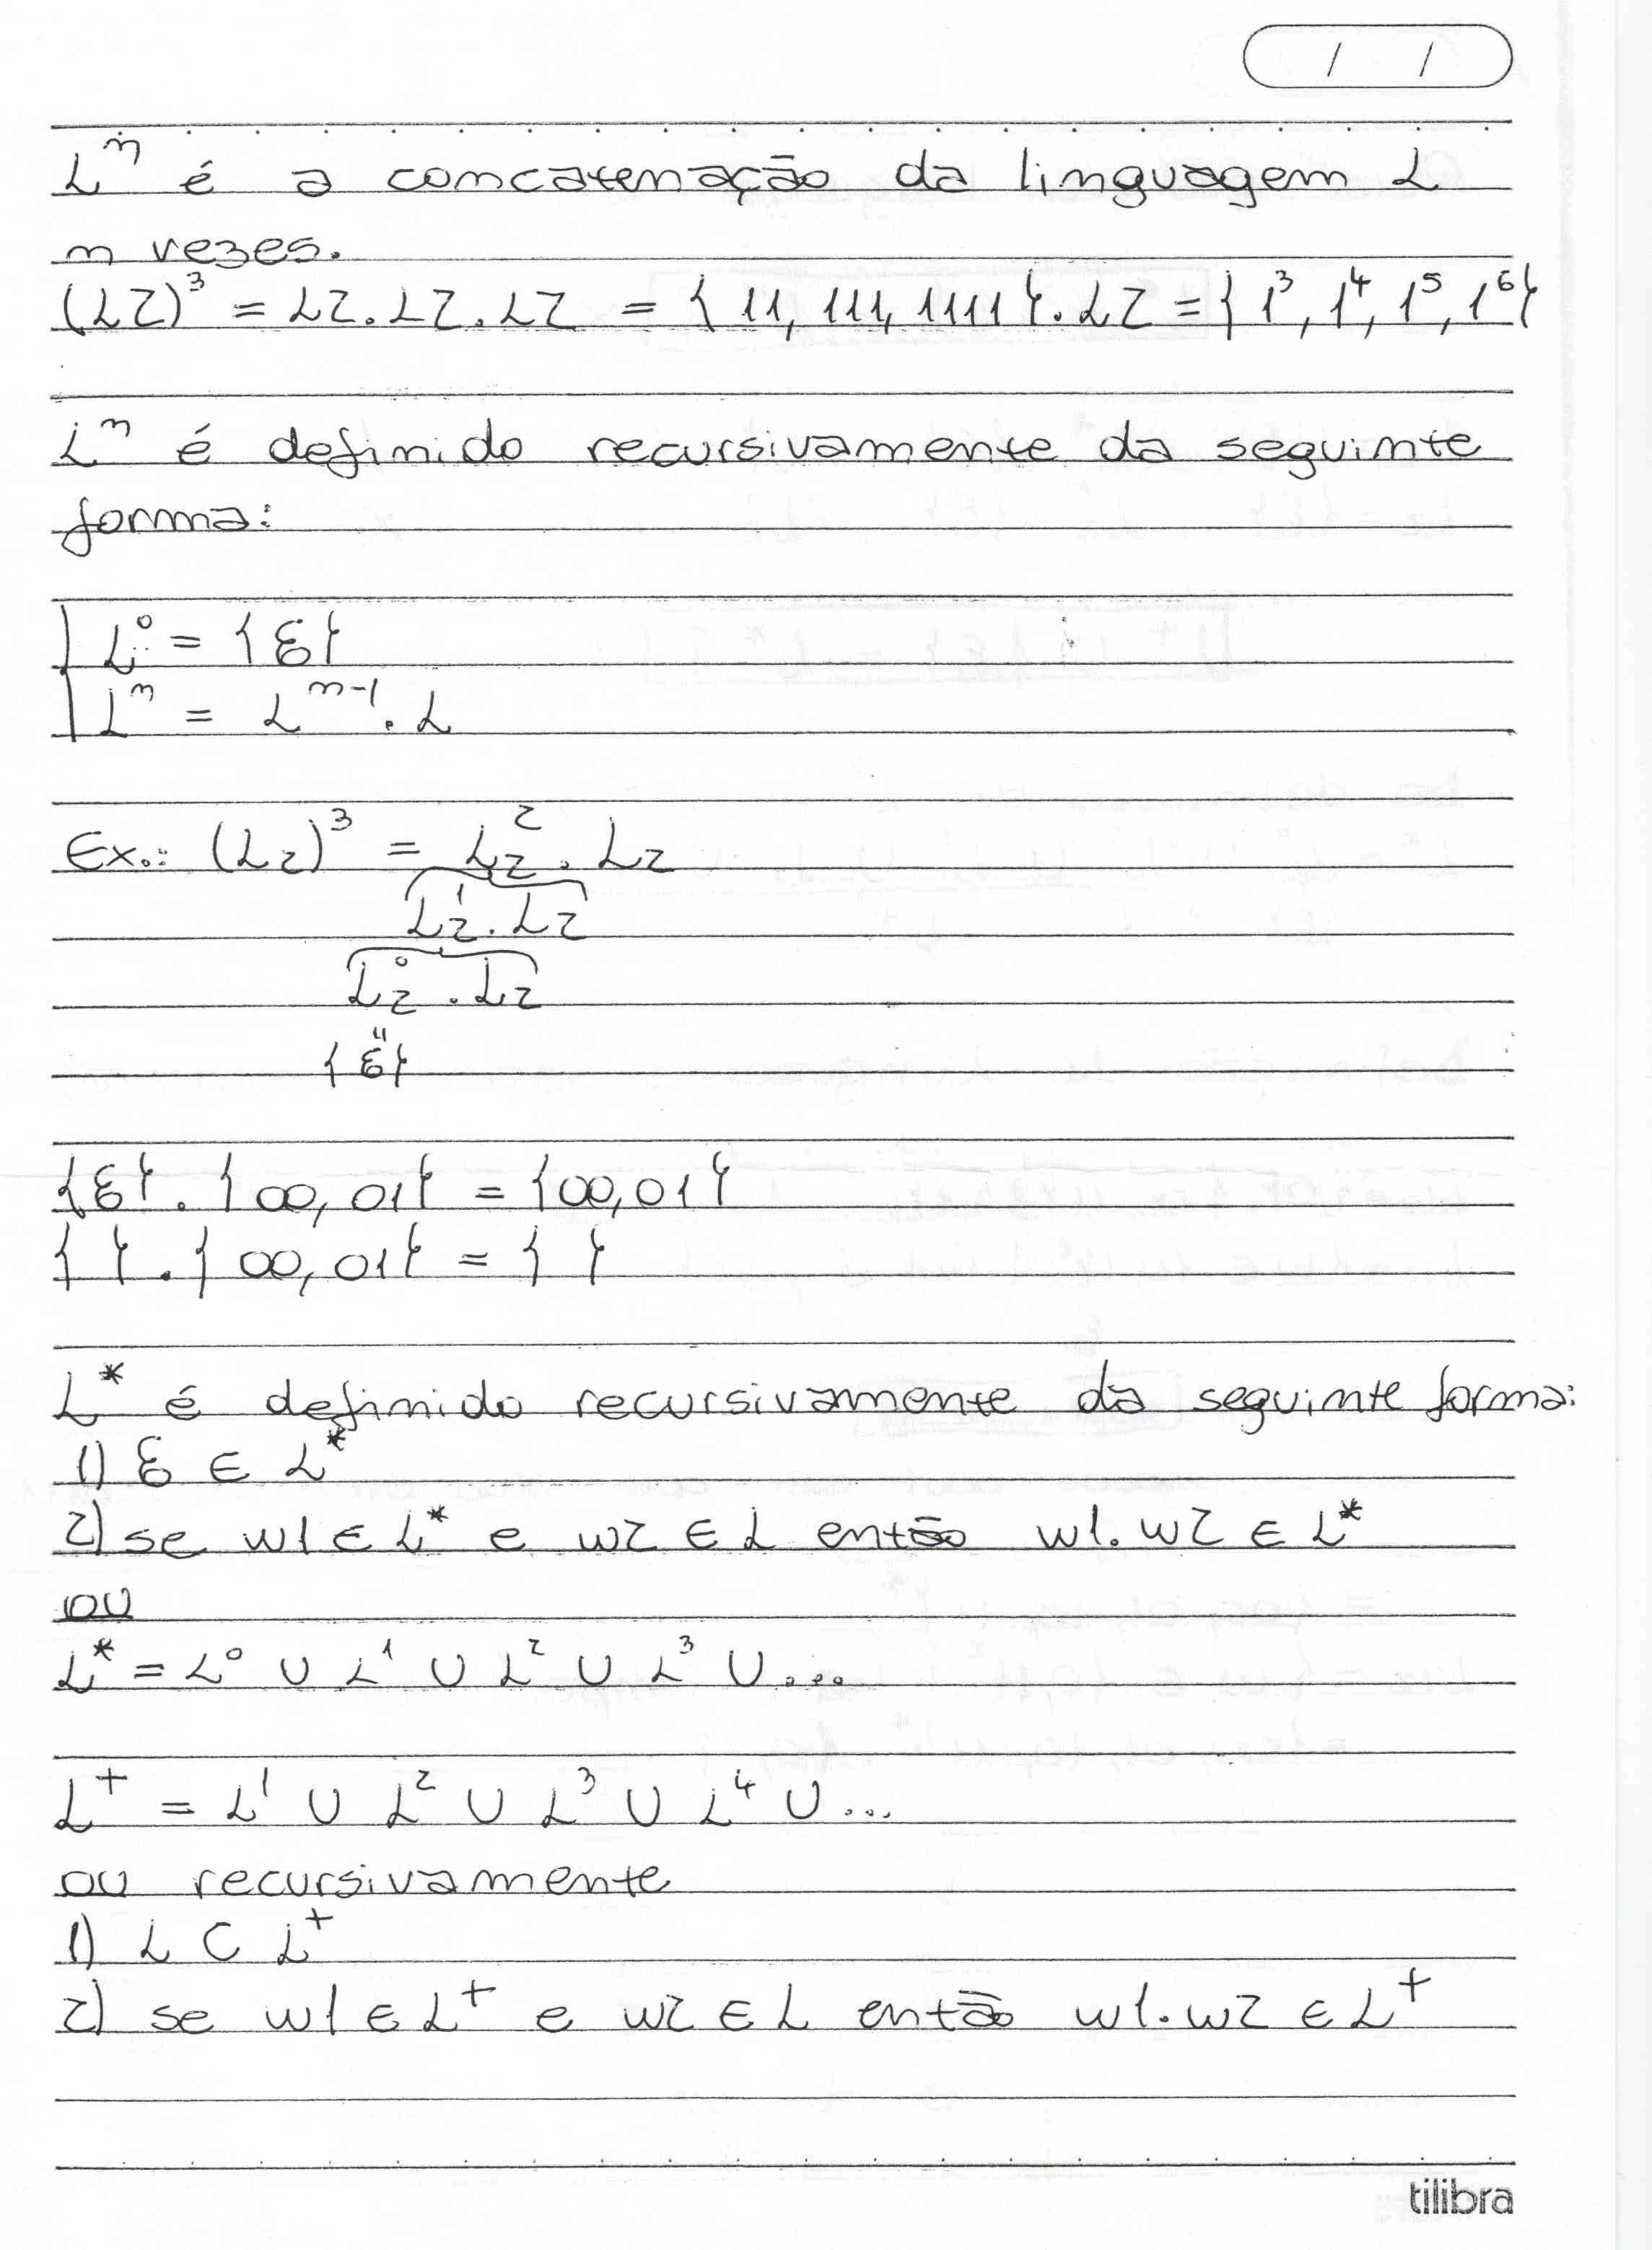 / /
Lⁿ é a concatenação da linguagem L
n vezes.
(L2)³ = L2.L2.L2 = {11, 111, 1111}.L2 = {1³, 1⁴, 1⁵, 1⁶}
Lⁿ é definido recursivamente da seguinte
forma:
L⁰ = {ε}
Lⁿ = Lⁿ⁻¹.L
Ex.: (L₂)³ = L₂².L₂
L₂¹.L₂
L₂⁰.L₂
"
{ε}
{ε}.{00,01} = {00,01}
{ }.{00,01} = { }
L* é definido recursivamente da seguinte forma:
1) ε ∈ L*
2) se w1 ∈ L* e w2 ∈ L então w1.w2 ∈ L*
ou
L* = L⁰ ∪ L¹ ∪ L² ∪ L³ ∪...
L⁺ = L¹ ∪ L² ∪ L³ ∪ L⁴ ∪...
ou recursivamente
1) L ⊂ L⁺
2) se w1 ∈ L⁺ e w2 ∈ L então w1.w2 ∈ L⁺
tilibra